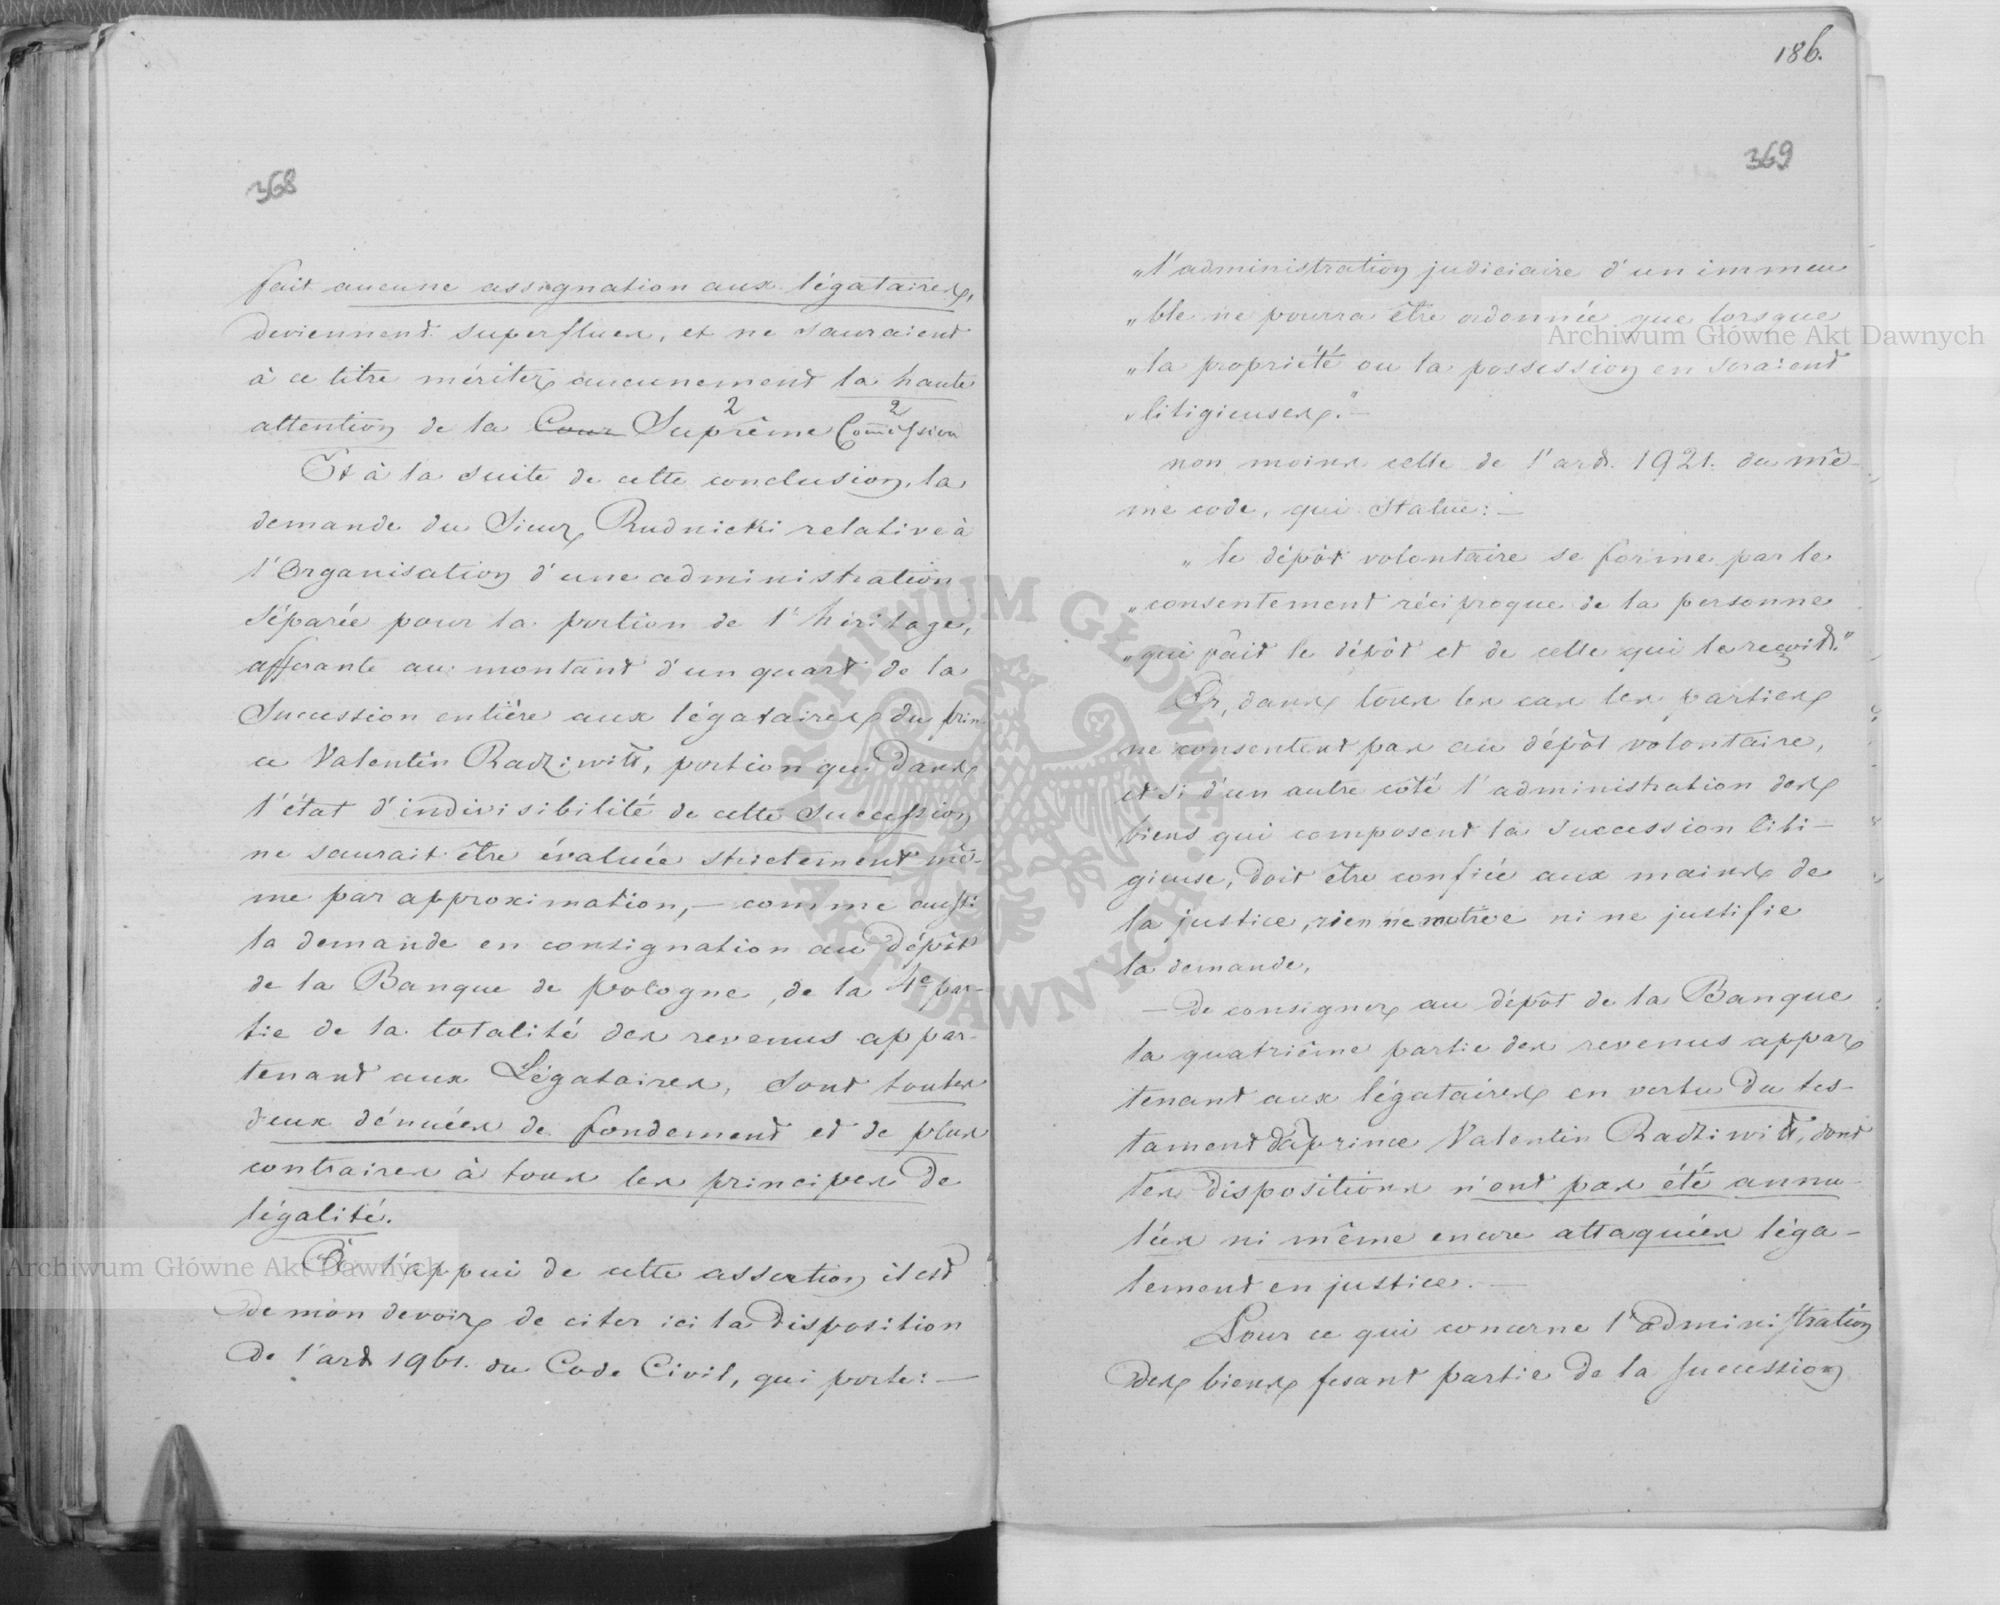 368
fait aucune assignation aux légataires,
deviennent superflues, et ne sauraient
à ce titre mériter aucunement la haute
attention de la Cour Suprême Commission
2 2
Et à la suite de cette conclusion, la
demande du Sieur Rudnicki relative à
l'Organisation d'une administration
séparée pour la portion de l'héritage,
afferante au montant d'un quart de la
Succession entière aux légataires du prin-
ce Valentin Radziwiłł, portion qui dans
l'état d'indivisibilité de cette succession
ne saurait être évaluée strictement mê-
me par approximation, — comme aussi
la demande en consignation au Dépôt
de la Banque de pologne, de la 4e par-
tie de la totalité des revenus appar-
tenant aux Légataires, sont toutes
deux dénuées de fondement et de plus
contraires à tous les principes de
légalité.
À l'appui de cette assertion il est
de mon devoir de citer ici la Disposition
De l'art 1961. du Code Civil, qui porte: —
186.
369
„l'administration judiciaire d'un immeu
„ble ne pourra être ordonnée que lorsque
„la propriété ou la possession en seraient
„litigieuses." —
non moins celle de l'art. 1921. du mê-
me code, qui statue: —
„le dépôt volontaire se forme par le
„consentement réciproque de la personne
„qui fait le dépôt et de celle qui le reçoit."
Or, dans tous les cas les parties
ne consentent pas au dépôt volontaire,
et si d'un autre côté l'administration des
biens qui composent la succession liti-
gieuse, doit être confiée aux mains de
la justice, rien ne motive ni ne justifie
la demande,
— De consigner au dépôt de la Banque
la quatrième partie des revenus appar
tenant aux légataires en vertu Du tes-
tament prince Valentin Radziwiłł, dont
les dispositions n'ont pas été annu-
lées ni même encore attaquées léga-
lement en justice. —
Pour ce qui concerne l'administration
Des biens fesant partie De la succession
Archiwum Główne Akt Dawnych
Archiwum Główne Akt Dawnych
ARCHIWUM GŁÓWNE AKT DAWNYCH